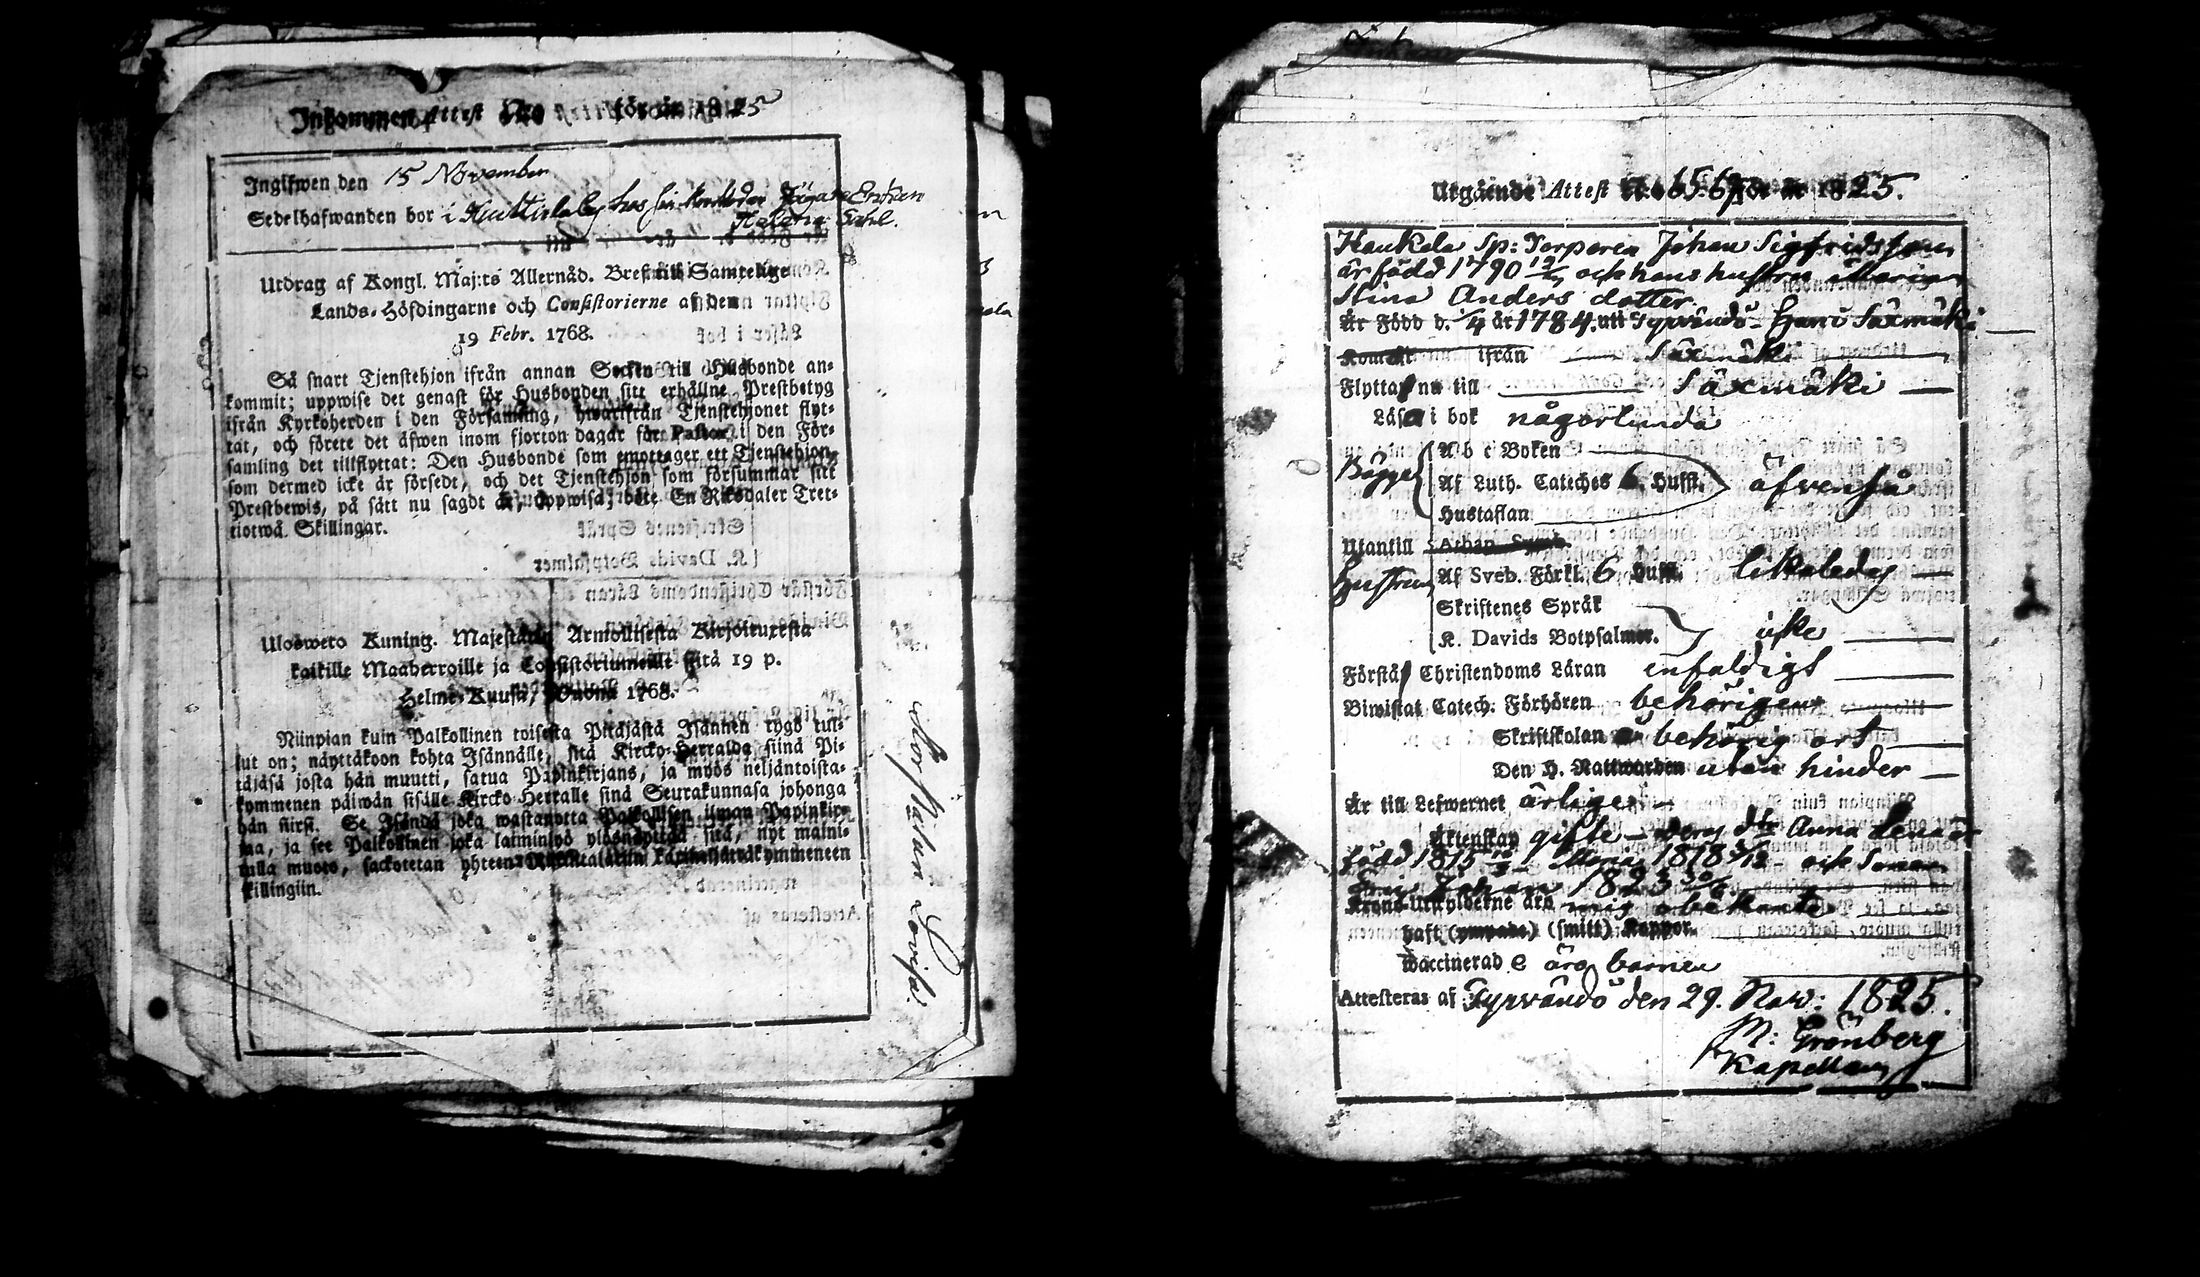 Inkommen Attest No för år 1825
Ingifwen den 15 November
Sedelhafwanden bor i hos sin Enkan
Helena
Utdrag af Kongl. Maj:ts Allernåd. Bref till Samtelige
Lands-Höfdingarne och Consistorierne af den
19 Febr. 1768.
Så snart Tjenstehjon ifrån annan Socken till Husbonde an-
kommit; uppwise det genast för Husbonden sitt erhållne Prestbetyg
ifrån Kyrkoherden i den Församling, hwarifrån Tjenstehjonet flyt-
tat, och förete det äfwen inom fjorton dagar för Pastor i den För-
samling det tillflyttat: Den Husbonde som emottager ett Tjenstehjon,
som dermed icke är försedt, och det Tjenstehjon som försummar sitt
Prestbewis, på sätt nu sagdt är, uppwisa, böte En Riksdaler Tret-
tiotwå Skillingar.
Ulosweto Kuning. Majestätin Armollisesta Kirjoituxesta
kaikille Maaherroille ja Consistoriumeille siitä 19 p.
Helme-Kuusa, Wuona 1768.
Niinpian kuin Palkollinen toisesta Pitäjästä Isännen tygö tul-
lut on; näyttäkoon kohta Isännälle, sitä Kircko-Herralda siinä Pi-
täjäsä josta hän muutti, saatua Papinkirjans, ja myös neljäntoista-
kymmenen päiwän sisälle Kircko-Herralle siinä Seurakunnasa johonga
hän siirsi. Se Isändä joka wastanotta Palkollisen ilman Papinkir-
jaa, ja see Palkollinen joka laiminlyö ylösnäyttää sitä, nyt maini-
tulla muoto, sackotetan yhteen Riikintalariin kaxineljättäkymmeneen
killingiin.
Norrstalan Lovisa.
Utgående Attest No 656 för år 1825.
Haukola Sp: Torparen Johan Sigfridsson
är född 1790 och hans hustru Maria
Stina Anders dotter.
Är Född d. 1/4 år 1784. utt Tyrvändö Säxmäki
Kommit ifrån Säxmäki
Flyttar nu till Säxmäki
Läsa i bok någorlunda
Bägge A b c Boken
Af Luth. Cateches 6. Hufst. äfvenså
Hustaflan
Utantill Athan. Symb.
Hustrun Af Sveb. Förkl. 6 Hufst. likaledes
Skriftenes Språk
K. Davids Botpsalmer. icke
Förstå Christendoms Läran enfaldigt
Biwistat Catech. Förhören behörigen
Skriftskolan å behörig ort
Den H. Nattwarden utan hinder
Är till Lefwernet ärliga
Äktenskap gifte deras dtr Anna Lena är
född 1815 1818 och Sonen
Johan 1823
Krono-Utskylderne äro mig obekante
haft (ympade) (smitt) Koppor
Vaccinerade äro barnen
Attesteras af Tyrvändö den 29. Nov: 1825.
M: Grönberg
Kapellan